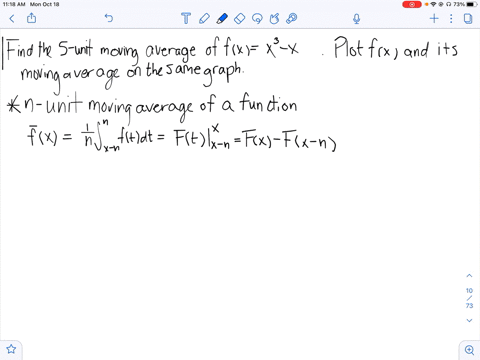 11:18 AM Mon Oct 18
73%
Find the 5-unit moving average of f(x) = x³-x . Plot f(x) and its
moving average on the same graph.
*n-unit moving average of a function
f̄(x) = 1/n ∫_{x-n}^{n} f(t)dt = F(t)|_{x-n}^{x} = F(x) - F(x-n)
10
/
73